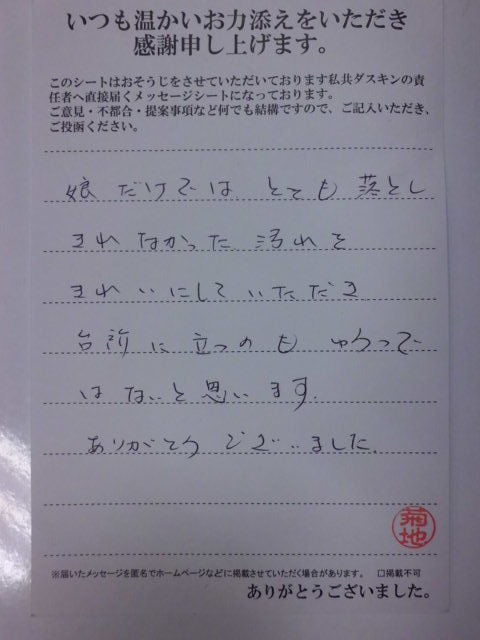 いつも温かいお力添えをいただき
感謝申し上げます。
このシートはおそうじをさせていただいております私共ダスキンの責
任者へ直接届くメッセージシートになっております。
ご意見・不都合・提案事項など何でも結構ですので、ご記入いただき、
ご投函ください。
娘だけではとても落とし
きれなかった汚れを
きれいにしていただき
台所に立つのも
はないと思います。
ありがとうございました。
菊地
※届いたメッセージを匿名でホームページなどに掲載させていただく場合があります。 □掲載不可
ありがとうございました。